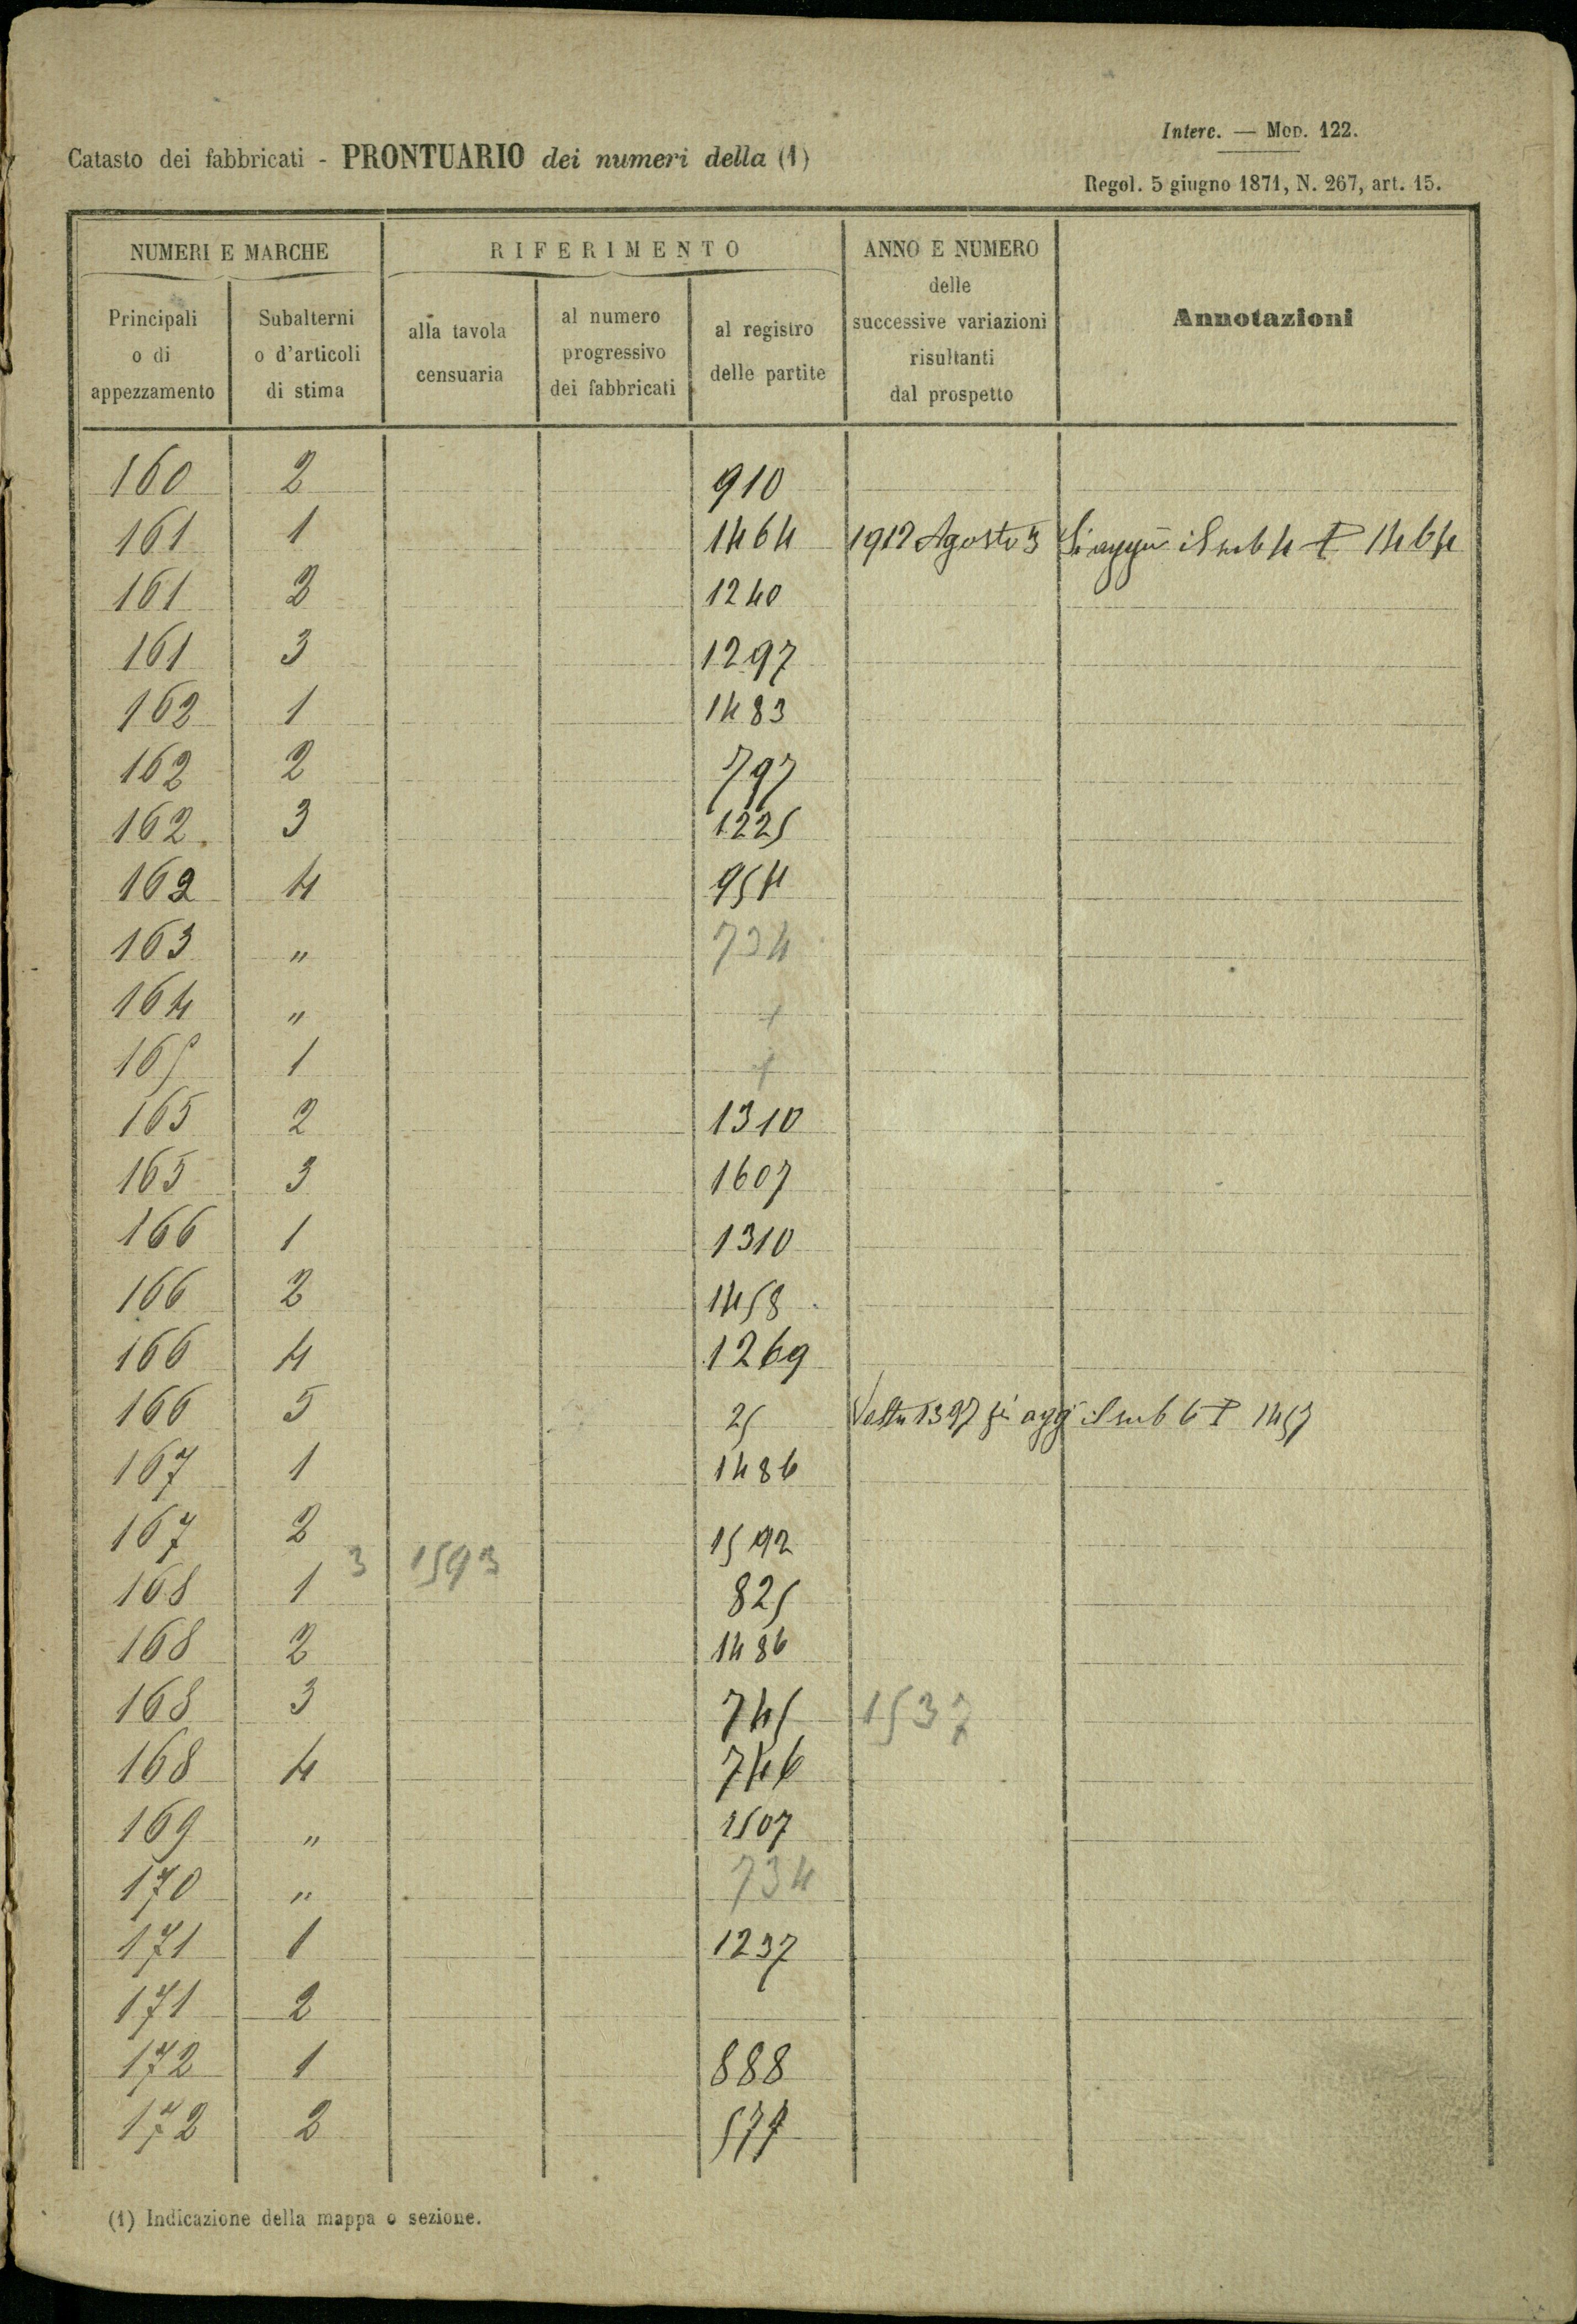 Interc. — Mod. 122.
Catasto dei fabbricati - PRONTUARIO dei numeri della (1)
Regol. 5 giugno 1871, N. 267, art. 15.
NUMERI E MARCHE
RIFERIMENTO
ANNO E NUMERO
delle
successive variazioni
risultanti
dal prospetto
Annotazioni
Principali
o di
appezzamento
Subalterni
o d'articoli
di stima
alla tavola
censuaria
al numero
progressivo
dei fabbricati
al registro
delle partite
160 2 910
161 1 1464 1912 Agosto 3 Si aggiu il sub 4 P 1464
161 2 1240
161 3 1297
162 1 1483
162 2 797
162 3 1225
162 4 954
163 " 734
164 " +
165 1 +
165 2 1310
165 3 1607
166 1 1310
166 2 1458
166 4 1269
166 5 25 1397 si agg il sub 6 P 1457
167 1 1486
167 2 1592
3 1593
168 1 825
168 2 1486
168 3 745 1537
168 4 746
169 " 1507
170 " 734
171 1 1237
171 2
172 1 888
172 2 577
(1) Indicazione della mappa o sezione.